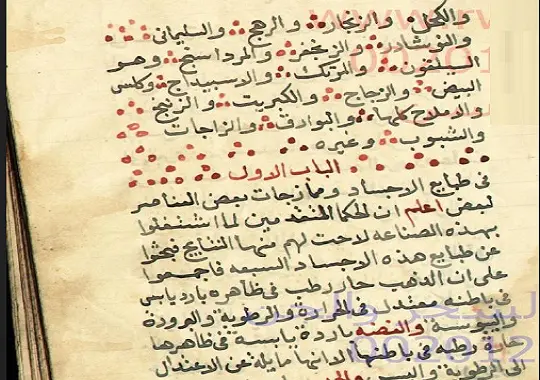 والكحل والزنجار والرهج والسليماني
والنوشادر والزنجفر والمرداسنج وهو
السيلقون والمرتك والاسبيداج وكلس
البيض والزجاج والكبريت والزرنيخ
والاملاح كلها والبوادق والزاجات
والشبوب وغيره
الباب الاول
في طبايع الاجساد وممازجات بعض العناصر
لبعض اعلم ان الحكما المتقدمين لما اشتغلوا
بهذه الصناعه لاحت لهم منها النتايج فبحثوا
عن طبايع هذه الاجساد السبعه فاجمعوا
على ان الذهب حار رطب في ظاهره بارد يابس
في باطنه معتدل في الحرورة والرطوبة والبرودة
واليبوسة والفضه باردة يابسة في ظاهرها
حارة رطبه في باطنها الا انها مايلة عن الاعتدال
الى الرطوبة